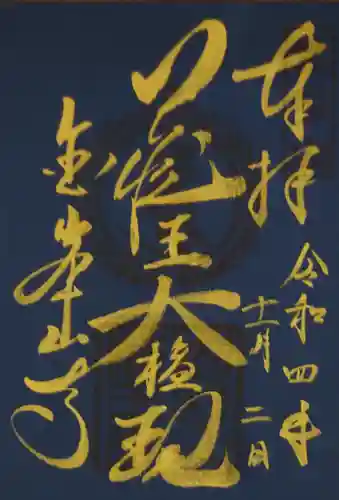 奉拝
令和四年
十二月二日
蔵王大権現
金峯山寺